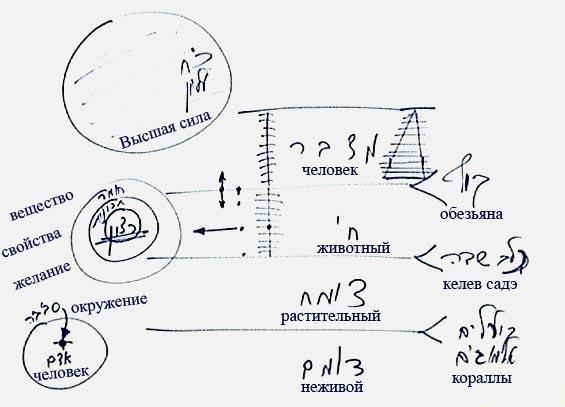 כ״ח
עליון
Высшая сила
מדבר
человек
חומר
תכונות
רצון
вещество
свойства
желание
קוף
обезьяна
חי
животный
כלב שדה
келев садэ
סביבה
окружение
אדם
человек
צומח
растительный
דומם
неживой
אלמוגים
кораллы